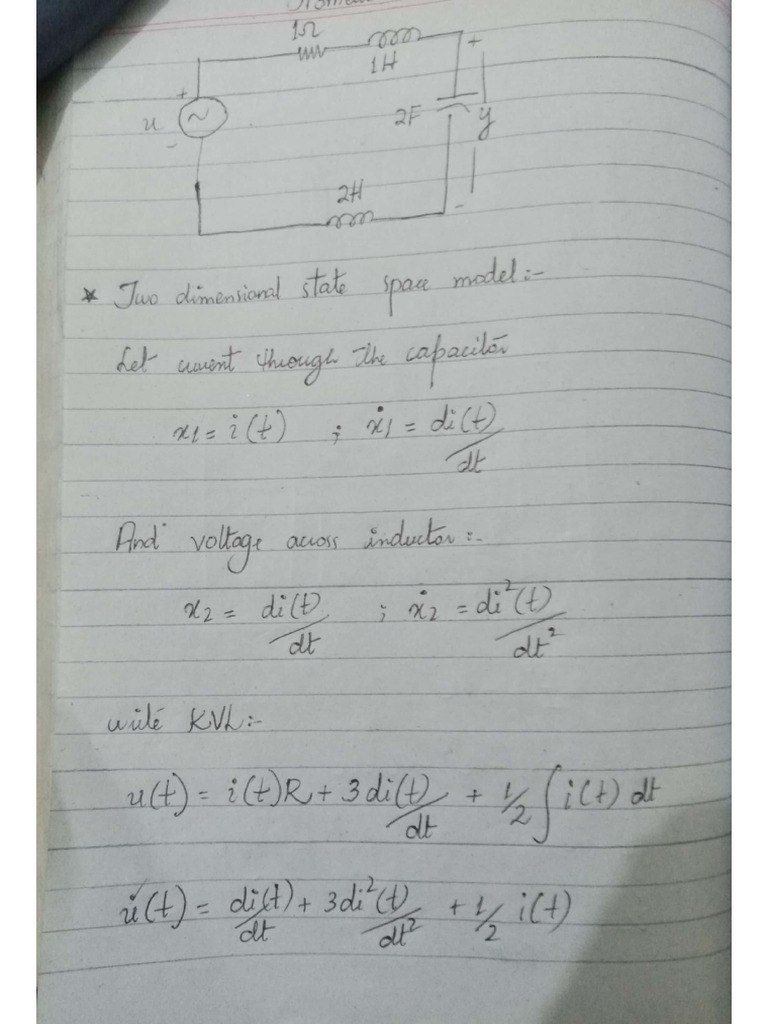 1Ω
1H
+
+
u
-
2F
y
2H
-
* Two dimensional state space model:-
Let current through the capacitor
x1 = i(t) ; ẋ1 = di(t)/dt
And voltage across inductor:-
x2 = di(t)/dt ; ẋ2 = di²(t)/dt²
write KVL:-
u(t) = i(t)R + 3di(t)/dt + 1/2 ∫ i(t) dt
u̇(t) = di(t)/dt + 3di²(t)/dt² + 1/2 i(t)